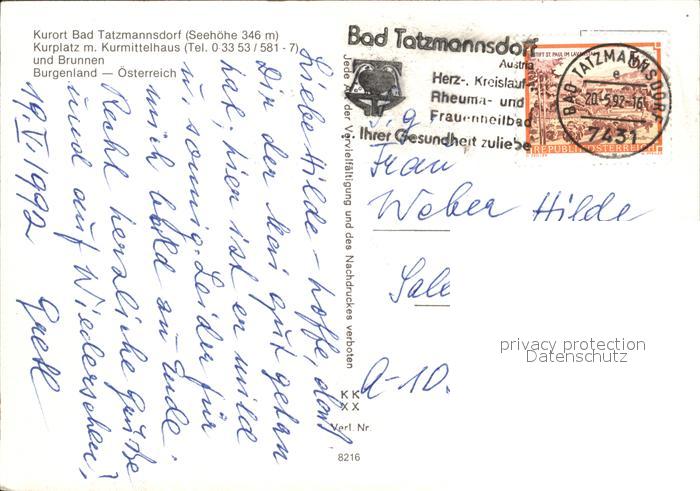 Kurort Bad Tatzmannsdorf (Seehöhe 346 m)
Kurplatz m. Kurmittelhaus (Tel. 0 33 53 / 581 - 7)
und Brunnen
Burgenland — Österreich
Liebe Hilde - hoffe, dass
Dir der Mai gut getan
hat; hier ist er mild
u. sonnig. Leider für
mich bald zu Ende.
Recht herzliche Grüße
und auf Wiedersehen,
19.V.1992 Gretl
Jede Art der Vervielfältigung und des Nachdruckes verboten
Bad Tatzmannsdorf
Austria
Herz-, Kreislauf-
Rheuma- und
Frauenheilbad
Ihrer Gesundheit zuliebe
STIFT ST. PAUL IM LAVANTTAL
REPUBLIK ÖSTERREICH
BAD TATZMANNSDORF
e
20.-5.92-16
7431
Frau
Weber Hilde
Sale
A-10.
privacy protection
Datenschutz
K K
X X
Verl. Nr.
8216